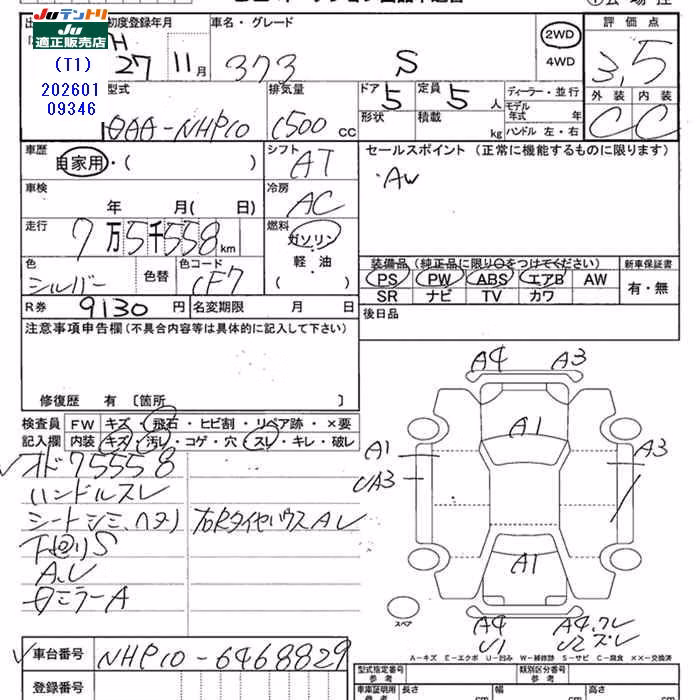 Juテントリ
Ju適正販売店
(T1)
202601
09346
初度登録年月
車名・グレード
H
27 11月
373 S
2WD
4WD
評価点
3.5
外装 内装
C C
型式
DAA-NHP10
排気量
1500 cc
ドア 5
定員 5 人
形状
積載 kg
ディーラー・並行
モデル年式 年
ハンドル 左・右
車歴
自家用・( )
シフト
AT
セールスポイント (正常に機能するものに限ります)
・AW
車検
年 月( 日)
冷房
AC
走行
7万5千558km
燃料
ガソリン
軽・油
( )
色
シルバー
色替
色コード
1F7
装備品 (純正品に限り○をつけてください)
PS PW ABS エアB AW
SR ナビ TV カワ
新車保証書
有・無
R券 9130円
名変期限 月 日
後日品
注意事項申告欄 (不具合内容等は具体的に記入して下さい)
修復歴 有 〔箇所 〕
検査員記入欄
FW キズ・飛石・ヒビ割・リペア跡・×要
内装 キズ・汚レ・コゲ・穴・スレ・キレ・破レ
オド75558
ハンドルスレ
シートシミ、ヘタリ
下回りS
A、U
A4 A3
A1
A1
UA3
A3
A1
A4
U1
スペア
A-キズ E-エクボ U-凹み W-補修跡 S-サビ C-腐食 ××-交換済
車台番号 NHP10-6468829
登録番号
型式指定番号
参考
類別区分番号
参考
車庫証明用
長さ cm
幅 cm
高さ cm